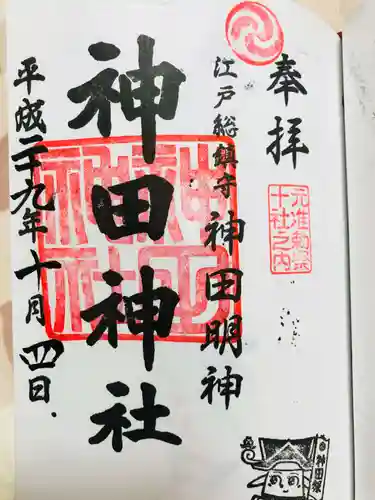 奉拝
元准勅祭
十社之内
江戸総鎮守 神田明神
神田神社
平成二十九年十月四日
神田祭